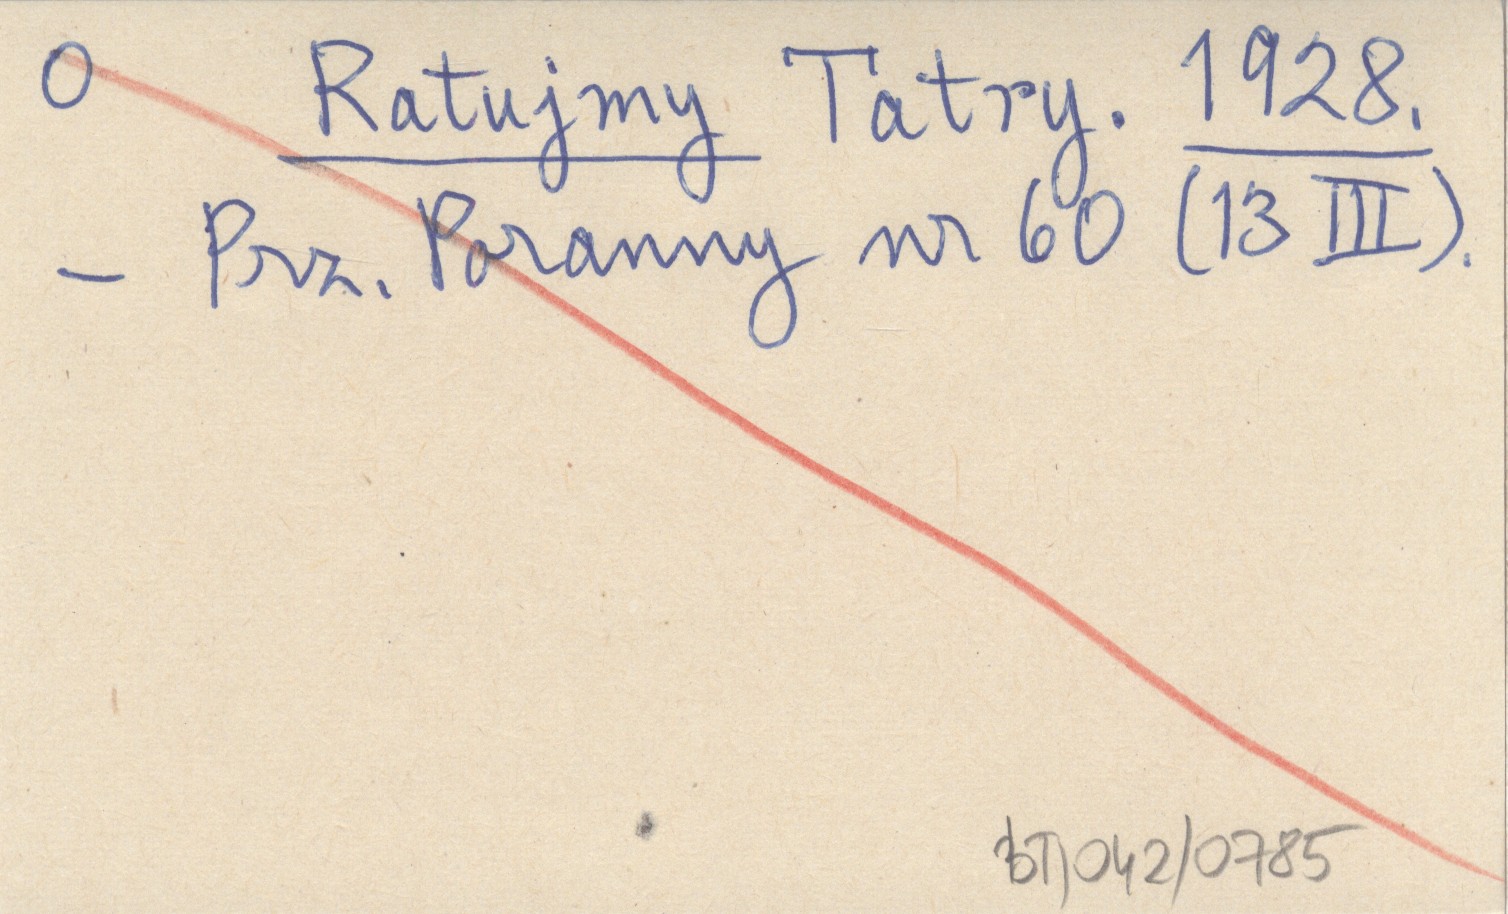 0 Ratujmy Tatry. 1928.
– Prz. Poranny nr 60 (13 III).
bT/042/0785